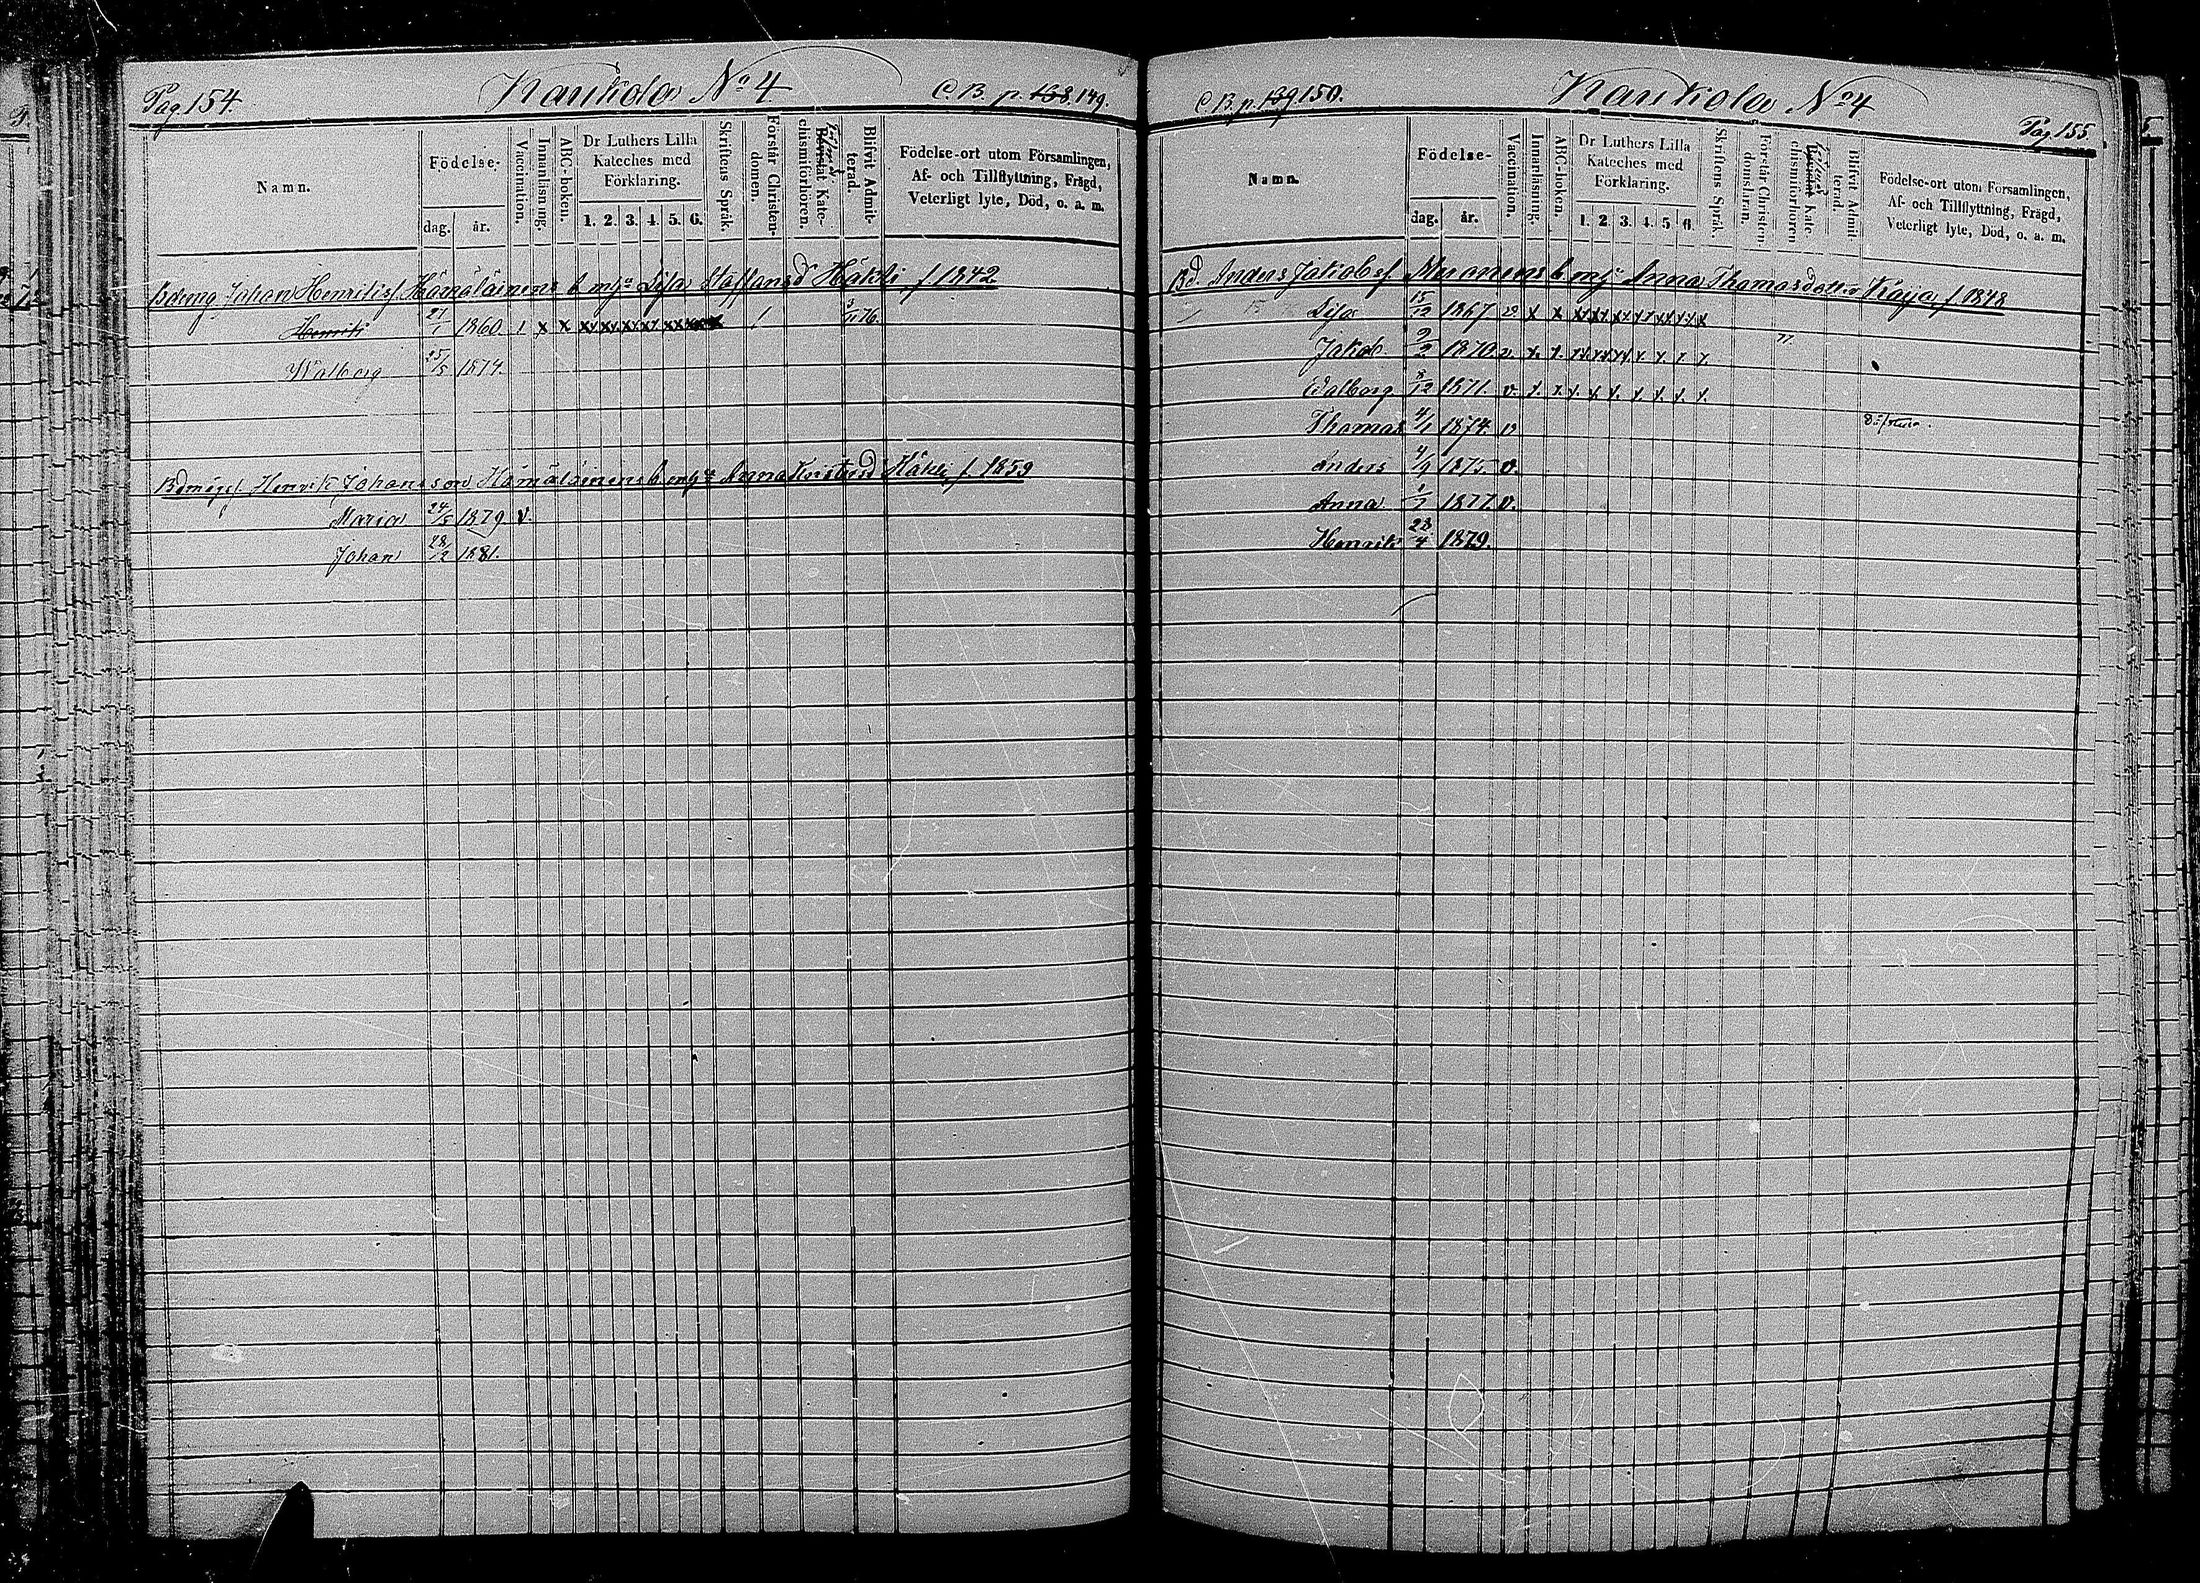 Pag 154.
Kaukola No 4
C. B. p. 138. 149.
Namn.
Födelse-
dag.
år.
Vaccination.
Innanläsning.
ABC-boken.
Dr Luthers Lilla
Kateches med
Förklaring.
1. 2. 3. 4. 5. 6.
Skriftens Språk.
Förstår Christen-
domen.
Bevistat Kate-
chismiförhören.
Blifvit Admit-
terad.
Födelse-ort utom Församlingen,
Af- och Tillflyttning, Frägd,
Veterligt lyte, Död, o. a. m.
Johan Henriksf. Hämäläinens b. m. Lisa Staffansd Häkli f. 1842
Henrik 27/1 1860. 1 x x 76.
Walborg 25/5 1874.
Henrik Johansson Hämäläinens b. m. Anna Häkli f. 1859
Maria 24/5 1879 v.
Johan 28/12 1881.
C. B. p. 139 150.
Kaukola No 4
Pag 155
Namn.
Födelse-
dag.
år.
Vaccination.
Innanläsning.
ABC-boken.
Dr Luthers Lilla
Kateches med
Förklaring.
1. 2. 3. 4. 5. 6.
Skriftens Språk.
Förstår Christen-
domsläran.
Bevistat Kate-
chismiförhören
Blifvit Admit-
terad.
Födelse-ort utom Församlingen,
Af- och Tillflyttning, Frägd,
Veterligt lyte, Död, o. a. m.
Bd. Anders Jakobsf. b. m. Anna Thomasdotter f. 1848
Lisa 15/12 1867 v x x
Jakob 9/2 1870 v. x. x.
Walborg 12 1871. v. x. x.
Thomas 4/1 1874. v
Anders 4/9 1875. v.
Anna 1/7 1877. v.
Henrik 23/4 1879.